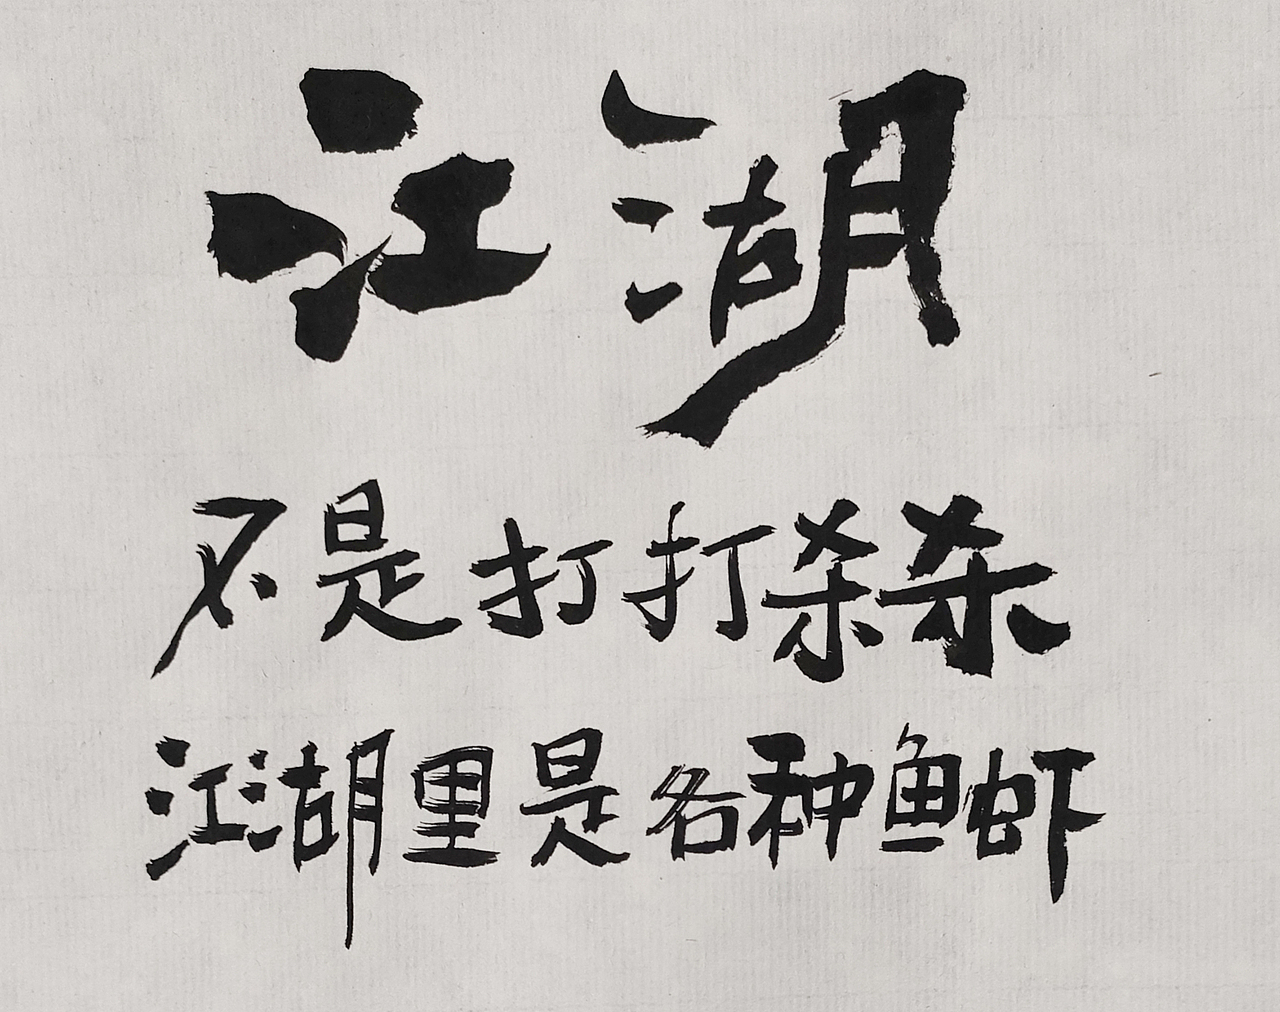 江湖
不是打打杀杀
江湖里是各种鱼虾